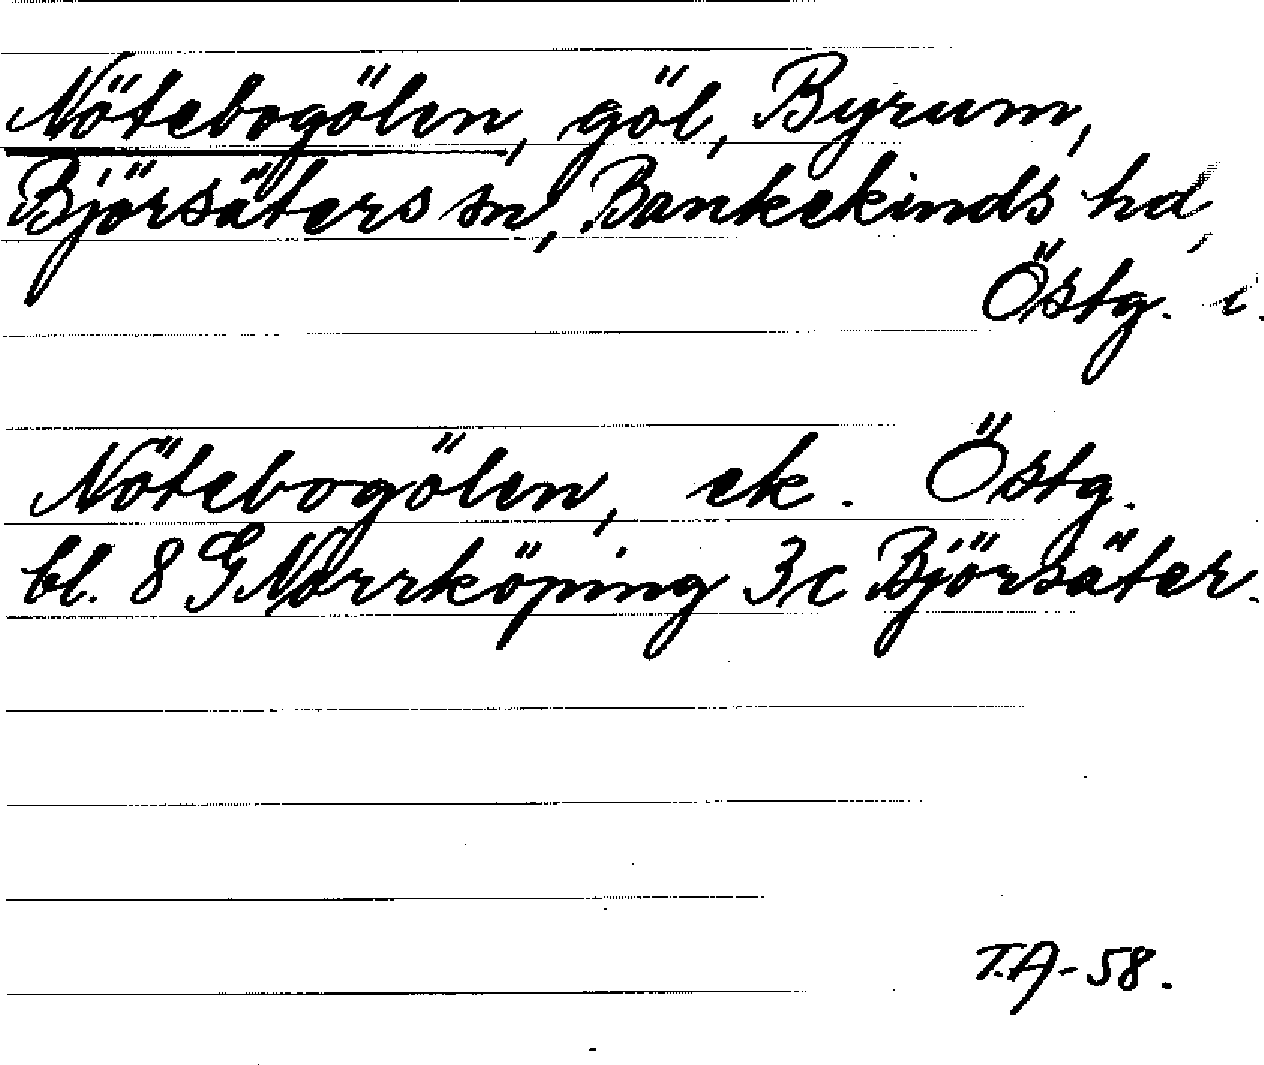 Nötebogölen, göl, Byrum,
Björsäters sn, Bankekinds hd,
Östg. i.
Nötebogölen, ek. Östg.
bl. 8 G Norrköping 3c Björsäter.
T.A-58.